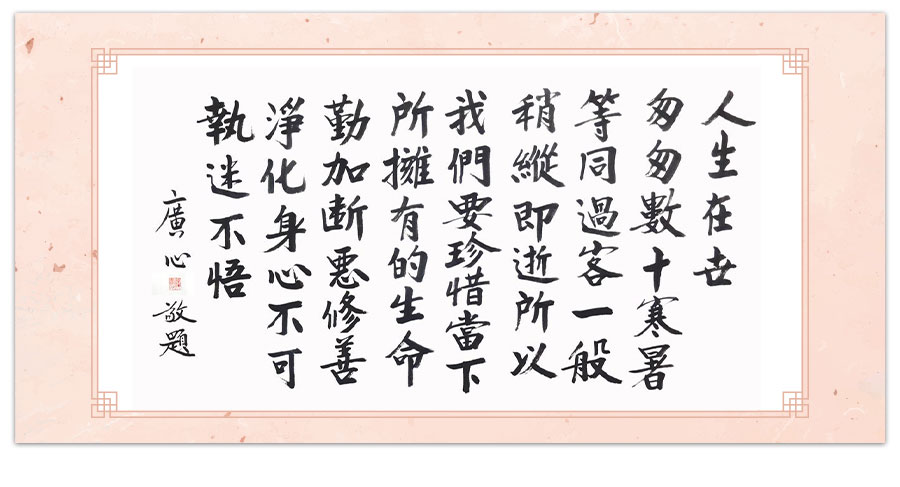 人生在世
匆匆數十寒暑
等同過客一般
稍縱即逝所以
我們要珍惜當下
所擁有的生命
勤加断惡修善
淨化身心不可
執迷不悟
廣心
敬題